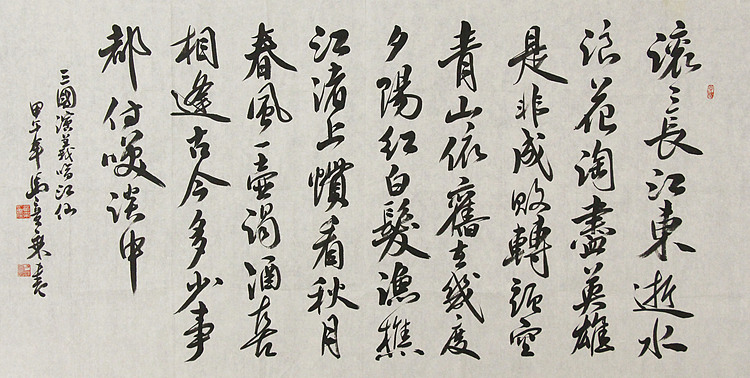 滚〻長江東逝水
浪花淘盡英雄
是非成敗轉頭空
青山依舊在幾度
夕陽紅白髮漁樵
江渚上慣看秋月
春風一壺濁酒喜
相逢古今多少事
都付咲談中
三國演義臨江仙
甲午年馬書